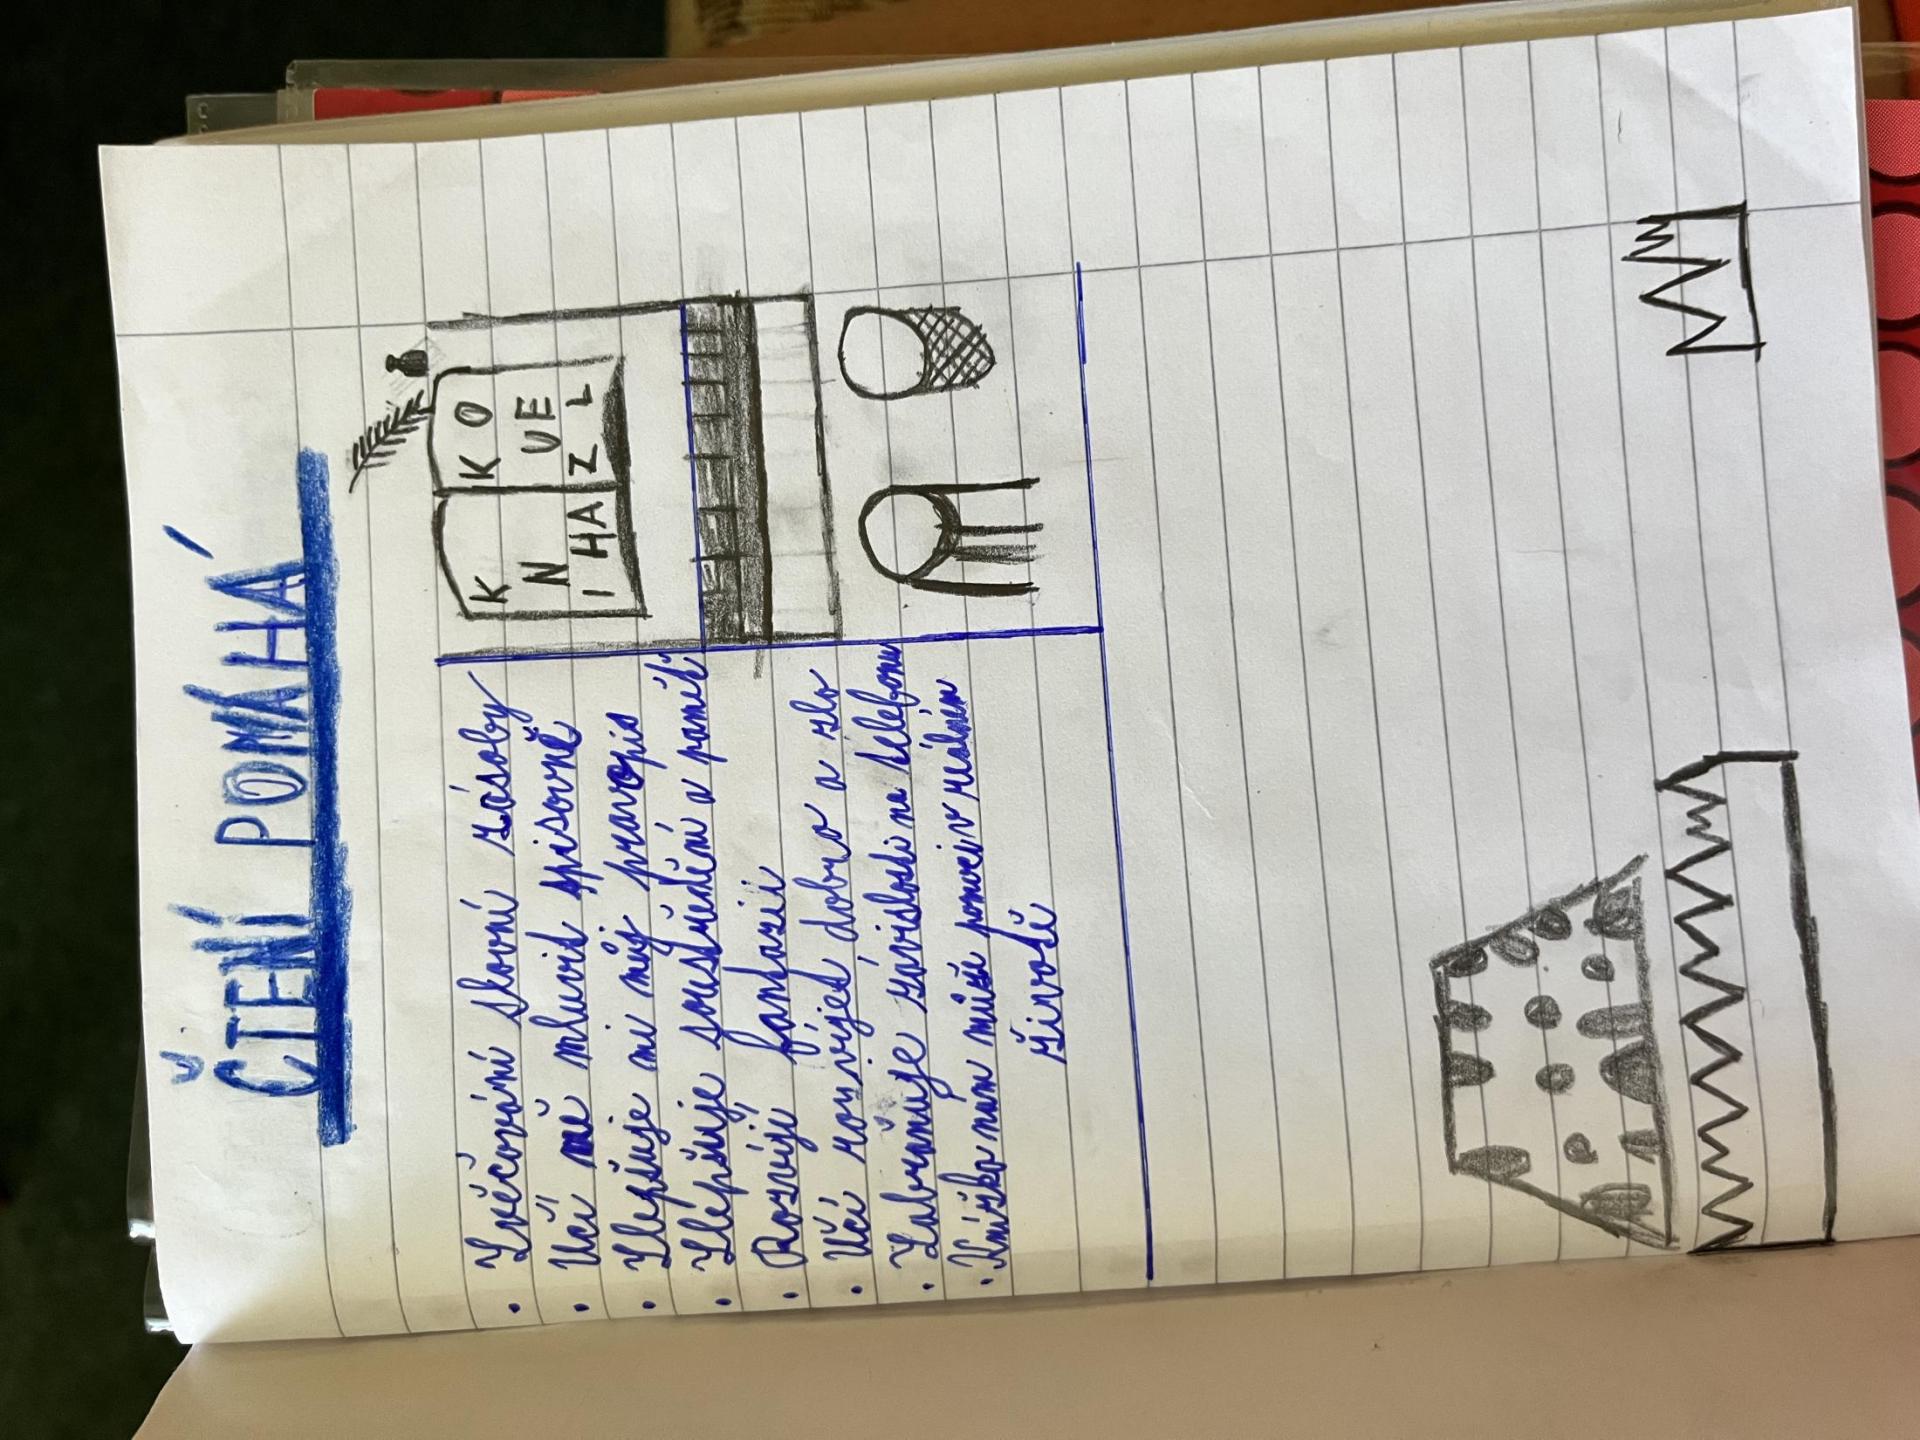 ČTENÍ POMÁHÁ
• Zvěčování slovní zásoby
• Učí mě mluvit spisovně
• Zlepšuje mi můj pravopis
• Zlepšuje soustředění a paměť
• Rozvíjí fantazii
• Učí rozvíjet dobro a zlo
• Zabraňuje závislosti na telefonu
• Knížka nám může pomoci v reálném
životě
K
N
I HA
K O
UE
Z L